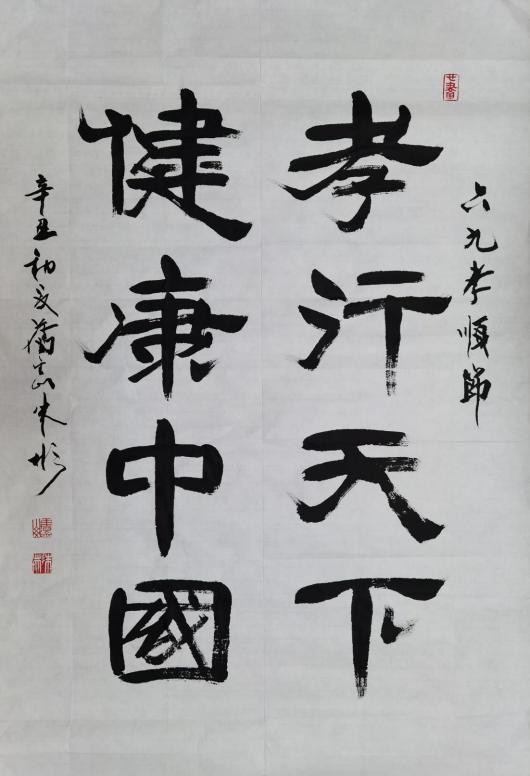 六九孝順節
孝行天下
健康中國
辛丑初夏